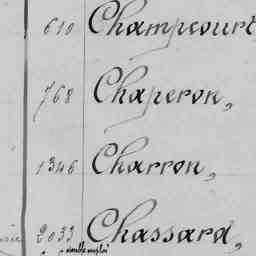 610 Champcourt
768 Chaperon,
1346 Charron,
2033 Chassard,
double emploi